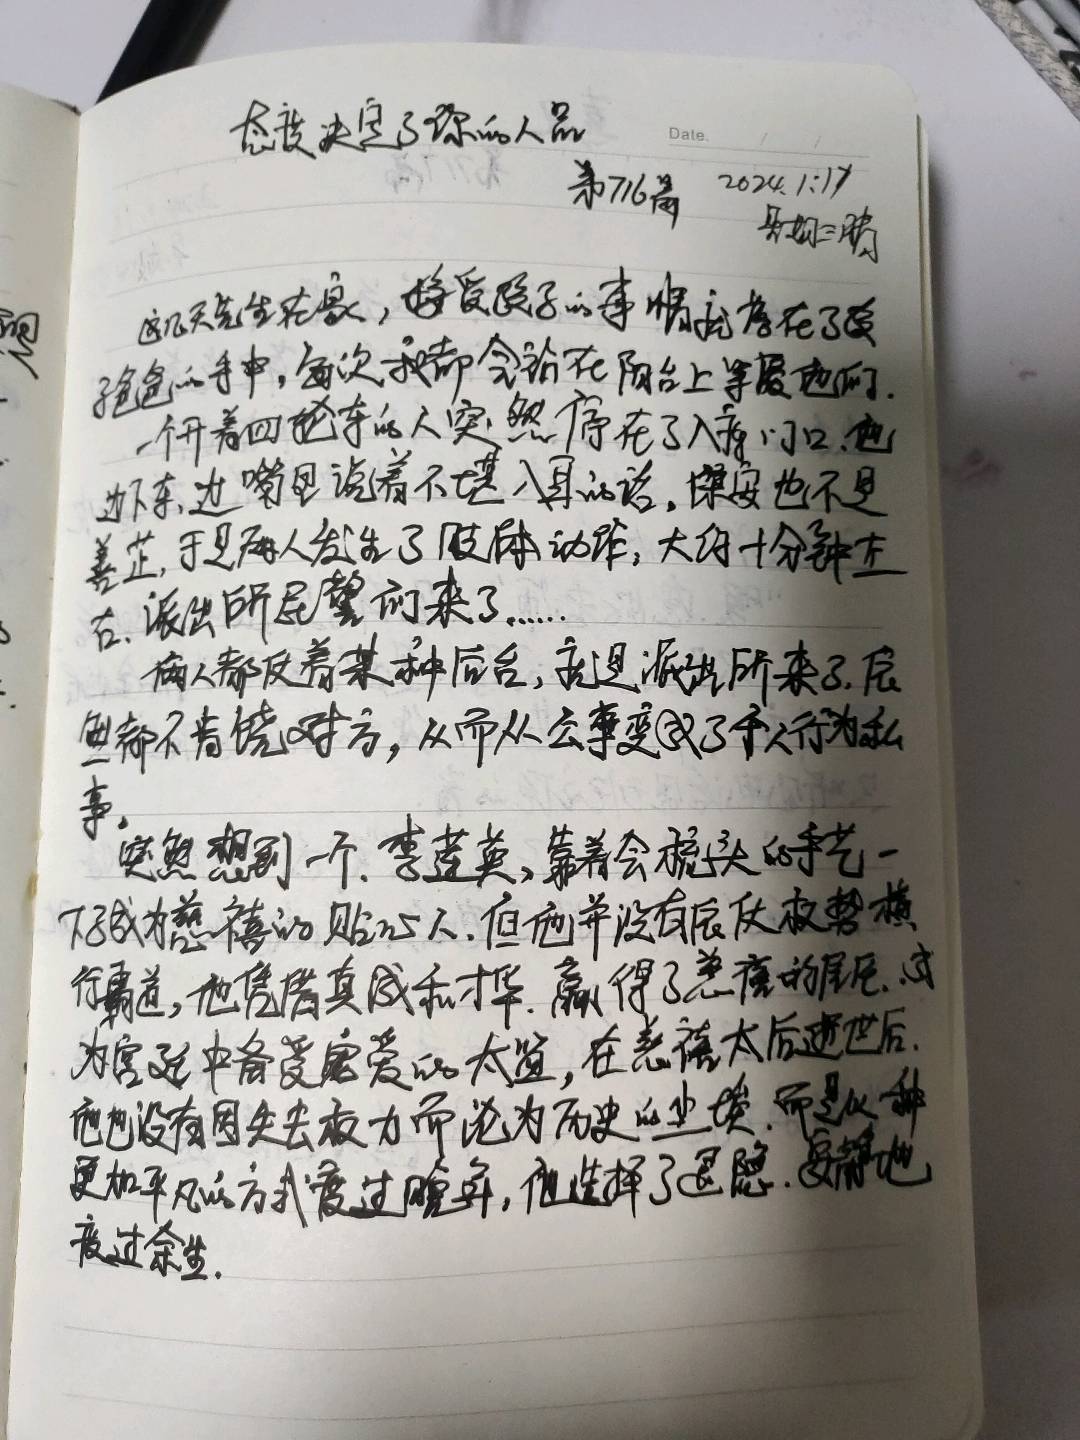 态度决定了你的人品
Date. / /
第716篇 2024.1.17
星期三 晴
这几天先生在家，接受孩子的事情就落在了孩
子爸爸的手中，每次我都会站在阳台上等候他们.
一个开着四轮车的人突然停在了入库门口.他
边下车,边嘴里说着不堪入耳的话，保安也不是
善茬,于是两人发生了肢体动作，大约十分钟左
右.派出所民警们来了……
两人都仗着某种后台，就是派出所来了.居
然都不肯饶对方，从而从公事变成了个人行为私
事。
突然想到一个.李莲英，靠着会梳头的手艺一
下子成为慈禧的贴心人.但他并没有依仗权势横
行霸道，他凭借真诚和才华.赢得了慈禧的尾巴.成
为宫廷中备受宠爱的太监，在慈禧太后逝世后.
他也没有因失去权力而沦为历史的尘埃.而是以一种
更加平凡的方式度过晚年，他选择了退隐.安静地
度过余生.